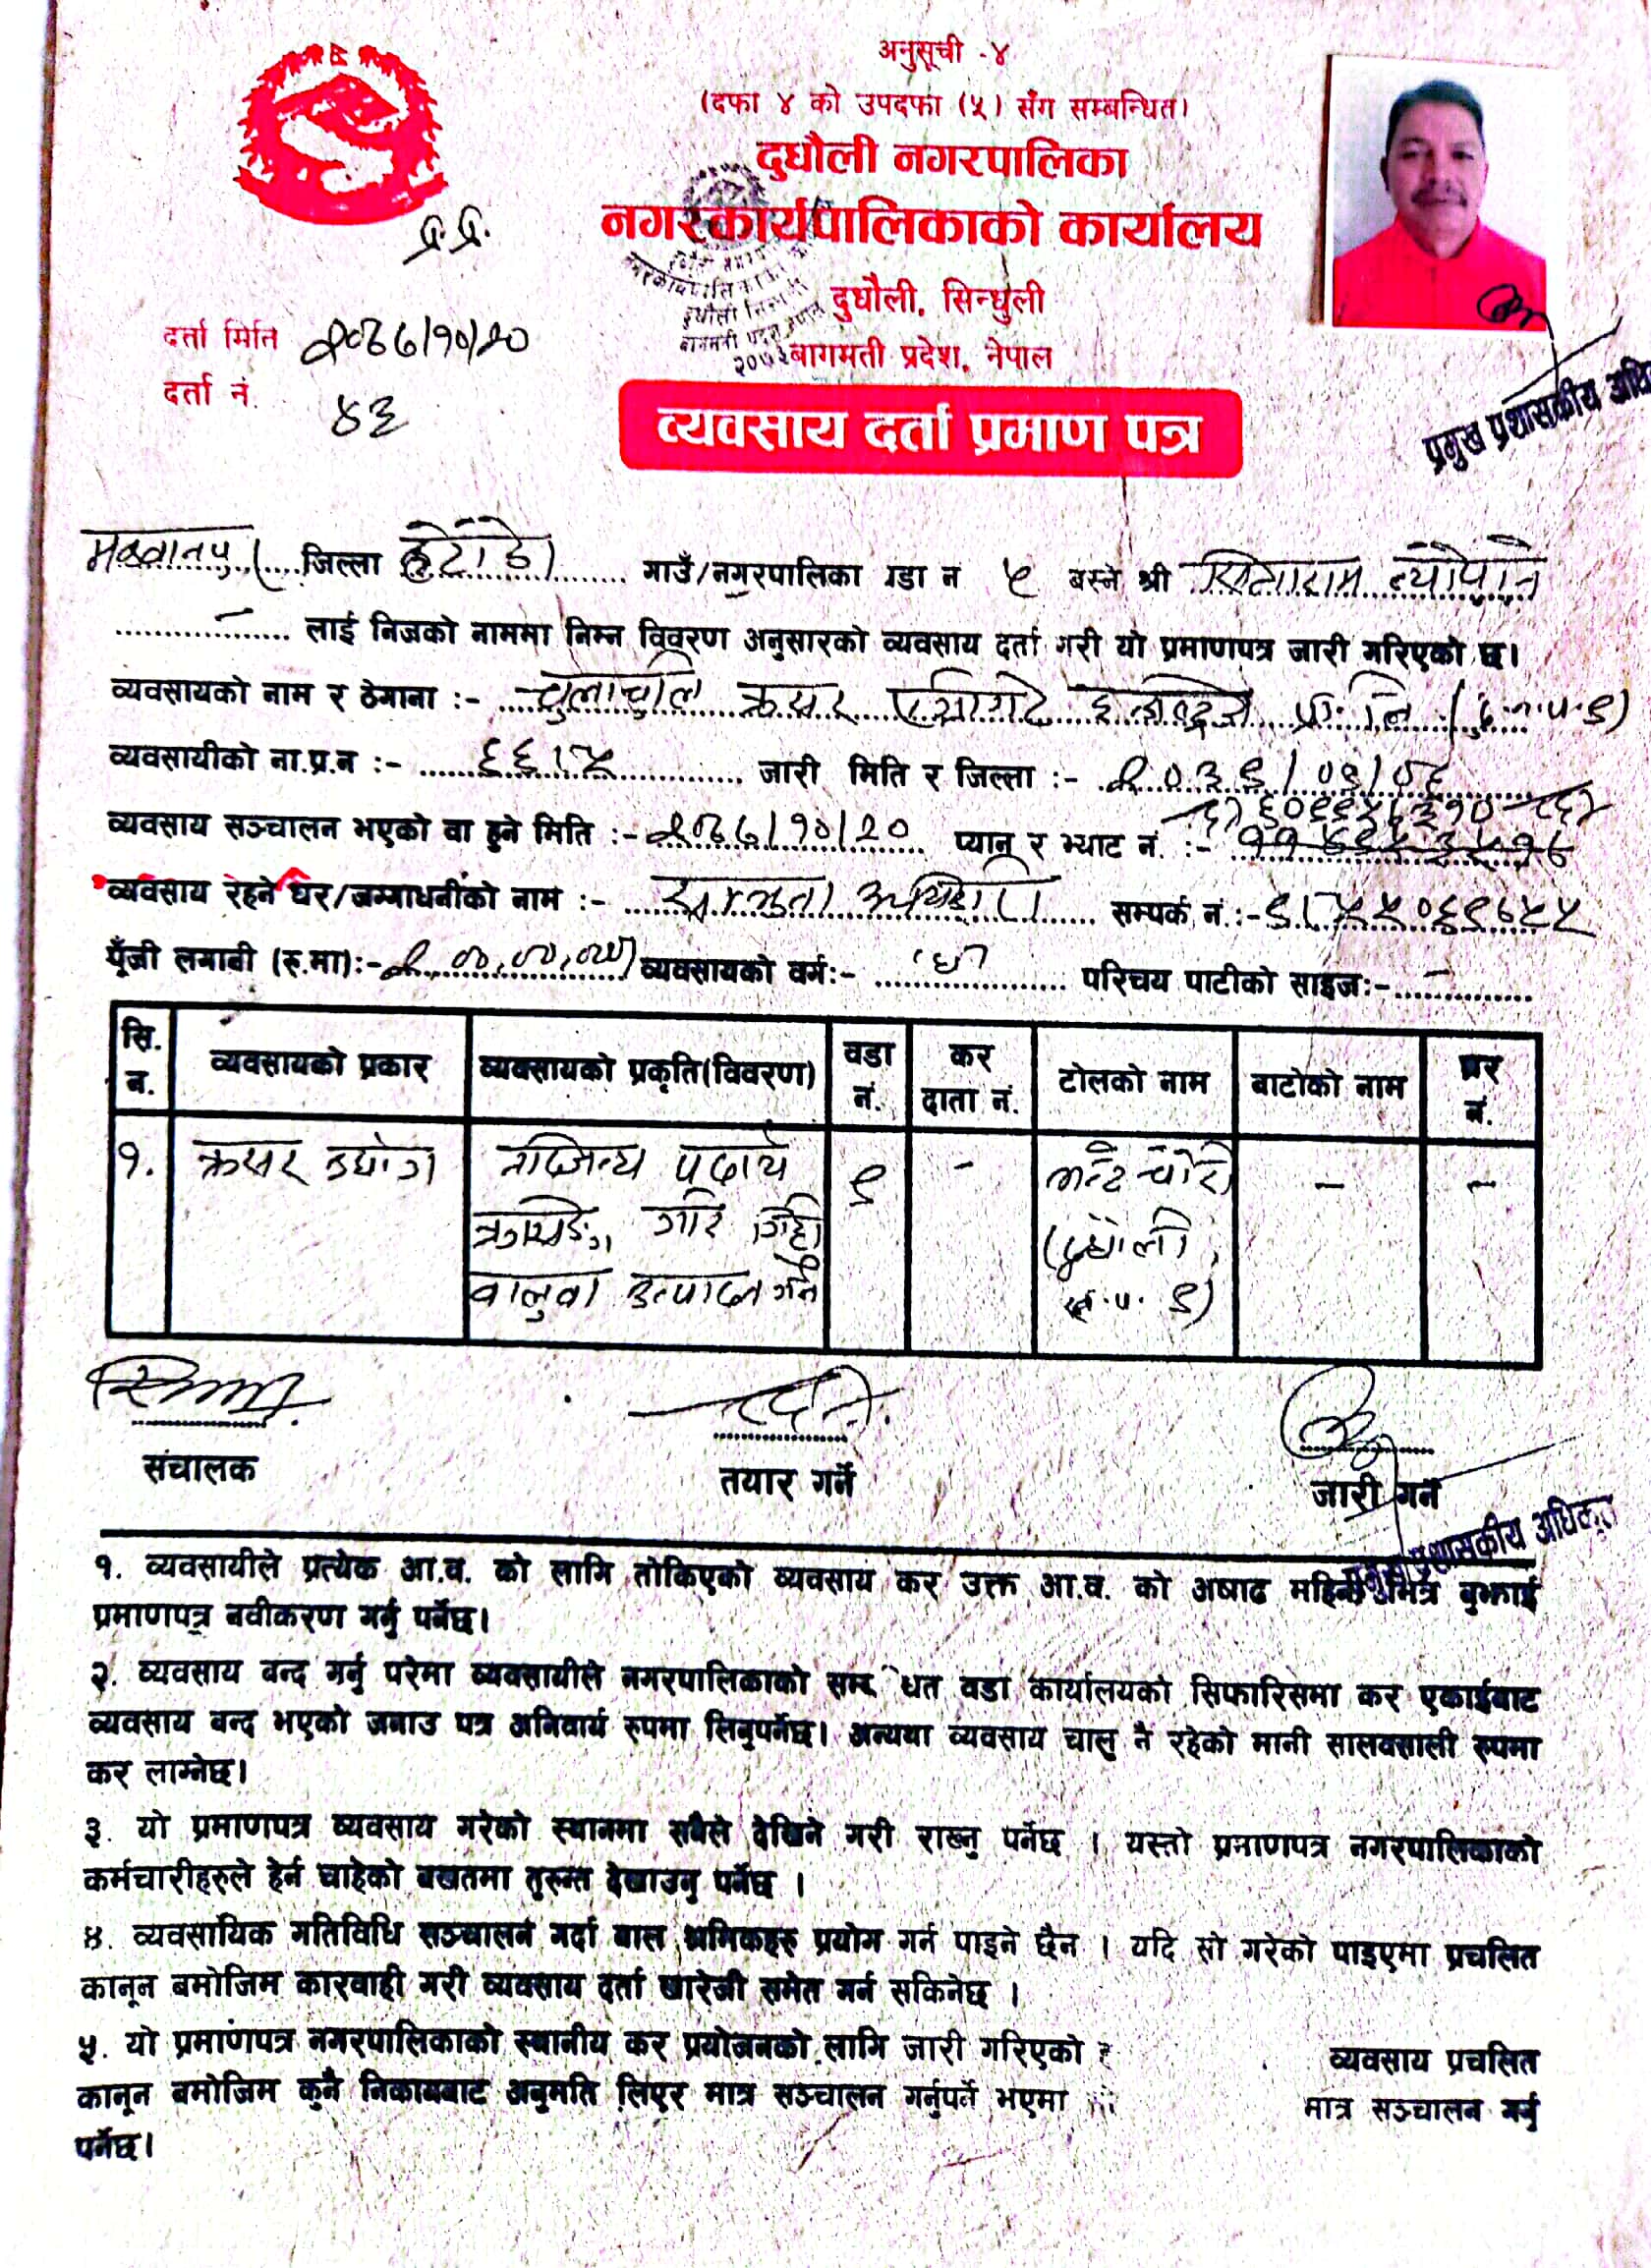 अनुसूची -४
(दफा ४ को उपदफा (५) सँग सम्बन्धित)
दुधौली नगरपालिका
नगरकार्यपालिकाको कार्यालय
दुधौली, सिन्धुली
बागमती प्रदेश, नेपाल
२०७३
प्र.प्र.
दर्ता मिति २०७७/१०/२०
दर्ता नं. ४३
व्यवसाय दर्ता प्रमाण पत्र
प्रमुख प्रशासकीय
मकवानपुर जिल्ला हेटौंडा गाउँ/नगरपालिका वडा न ५ बस्ने श्री सिताराम न्यौपाने
लाई निजको नाममा निम्न विवरण अनुसारको व्यवसाय दर्ता गरी यो प्रमाणपत्र जारी गरिएको छ।
व्यवसायको नाम र ठेगाना :- चुलाचुलि क्रसर एग्रीगेट इन्डष्ट्रिज प्रा. लि. (दु.न.पा.९)
व्यवसायीको ना.प्र.न :- जारी मिति र जिल्ला :- २०३९/०९/०६
व्यवसाय सञ्चालन भएको वा हुने मिति :- २०७७/१०/२० प्यान र भ्याट नं. :-
व्यवसाय रहने घर/जग्गाधनीको नाम :- सम्पर्क नं.:-
पूँजी लगानी (रु.मा):- २,००,००,०००/ व्यवसायको वर्ग:- 'घ' परिचय पाटीको साइज:- -
सि. न. व्यवसायको प्रकार व्यवसायको प्रकृति(विवरण) वडा नं. कर दाता नं. टोलको नाम बाटोको नाम घर नं.
१. क्रसर उद्योग नदिजन्य पदार्थ ९ - - -
क्रसिङ्ग गरि गिट्टी (दुधौली
वालुवा उत्पादन गर्ने न.पा. ९)
संचालक तयार गर्ने जारी गर्ने
प्रमुख प्रशासकीय अधिकृत
१. व्यवसायीले प्रत्येक आ.व. को लागि तोकिएको व्यवसाय कर उक्त आ.व. को अषाढ महिना भित्र बुझाई
प्रमाणपत्र नवीकरण गर्नु पर्नेछ।
२. व्यवसाय बन्द गर्नु परेमा व्यवसायीले नगरपालिकाको वडा कार्यालयको सिफारिसमा कर एकाईबाट
व्यवसाय बन्द भएको जनाउ पत्र अनिवार्य रुपमा लिनुपर्नेछ। अन्यथा व्यवसाय चालु नै रहेको मानी सालवसाली रुपमा
कर लाग्नेछ।
३. यो प्रमाणपत्र व्यवसाय गरेको स्थानमा सबैले देखिने गरी राख्नु पर्नेछ । यस्तो प्रमाणपत्र नगरपालिकाको
कर्मचारीहरुले हेर्न चाहेको बखतमा तुरुन्त देखाउनु पर्नेछ ।
४. व्यवसायिक गतिविधि सञ्चालन गर्दा बाल श्रमिकहरु प्रयोग गर्न पाइने छैन । यदि सो गरेको पाइएमा प्रचलित
कानून बमोजिम कारवाही गरी व्यवसाय दर्ता खारेजी समेत गर्न सकिनेछ ।
५. यो प्रमाणपत्र नगरपालिकाको स्थानीय कर प्रयोजनको लागि जारी गरिएको व्यवसाय प्रचलित
कानून बमोजिम कुनै निकायबाट अनुमति लिएर मात्र सञ्चालन गर्नुपर्ने भएमा मात्र सञ्चालन गर्नु
पर्नेछ।